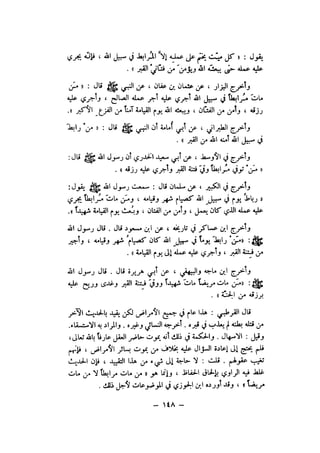 يقول : « كل ميّت يختم على عمله إلاّ المُرابط في سبيل الله ، فإنّه يجري
عليه عمله حتى يبعثه الله ويؤمن من فتّاني القبر » .
وأخرج البزار ، عن عثمان بن عفان ، عن النبي ﷺ قال : « مَن
مات مُرابطاً في سبيل الله أجري عليه أجر عمله الصالح ، وأجري عليه
رزقه ، وأمن من الفتّان ، ويبعثه الله يوم القيامة آمناً من الفزع الأكبر » .
وأخرج الطبراني ، عن أبي أمامة أن النبي ﷺ قال : « من رابط
في سبيل الله أمنه الله من القبر » .
وأخرج في الأوسط ، عن أبي سعيد الخدري أن رسول الله ﷺ قال :
« مَن توفي مُرابطاً وقي فتنة القبر وأجري عليه رزقه » .
وأخرج في الكبير ، عن سلمان قال : سمعت رسول الله ﷺ يقول :
« رباط يوم في سبيل الله كصيام شهر وقيامه ، ومَن مات مُرابطاً يجري
عليه عمله الذي كان يعمل ، وأمن من الفتان ، وبُعث يوم القيامة شهيداً » .
وأخرج ابن عساكر في تاريخه ، عن ابن مسعود قال . قال رسول الله
ﷺ : « مَن رابط يوماً في سبيل الله كان كصيام شهر وقيامه ، وأجير
من فتنة القبر ، وأجري عليه عمله إلى يوم القيامة » .
وأخرج ابن ماجه والبيهقي ، عن أبي هريرة قال . قال رسول الله
ﷺ : « مَن مات مريضاً مات شهيداً ووقي فتنة القبر وغدى وريح عليه
برزقه من الجنّة » .
قال القرطبي : هذا عام في جميع الأمراض لكن يقيد بالحديث الآخر
من قتله بطنه لم يعذب في قبره . أخرجه النسائي وغيره . والمراد به الاستسقاء.
وقيل : الاسهال . والحكمة في ذلك أنه يموت حاضر العقل عارفاً بالله تعالى ،
فلم يحتج إلى إعادة السؤال عليه بخلاف من يموت بسائر الأمراض ، فإنهم
تغيب عقولهم . قلت : لا حاجة إلى شيء من هذا التقييد ، فإن الحديث
غلط فيه الراوي بإتفاق الحفاظ ، وإنما هو « من مات مرابطاً لا من مات
مريضاً » ، وقد أورده ابن الجوزي في الموضوعات لأجل ذلك .
– ١٤٨ –